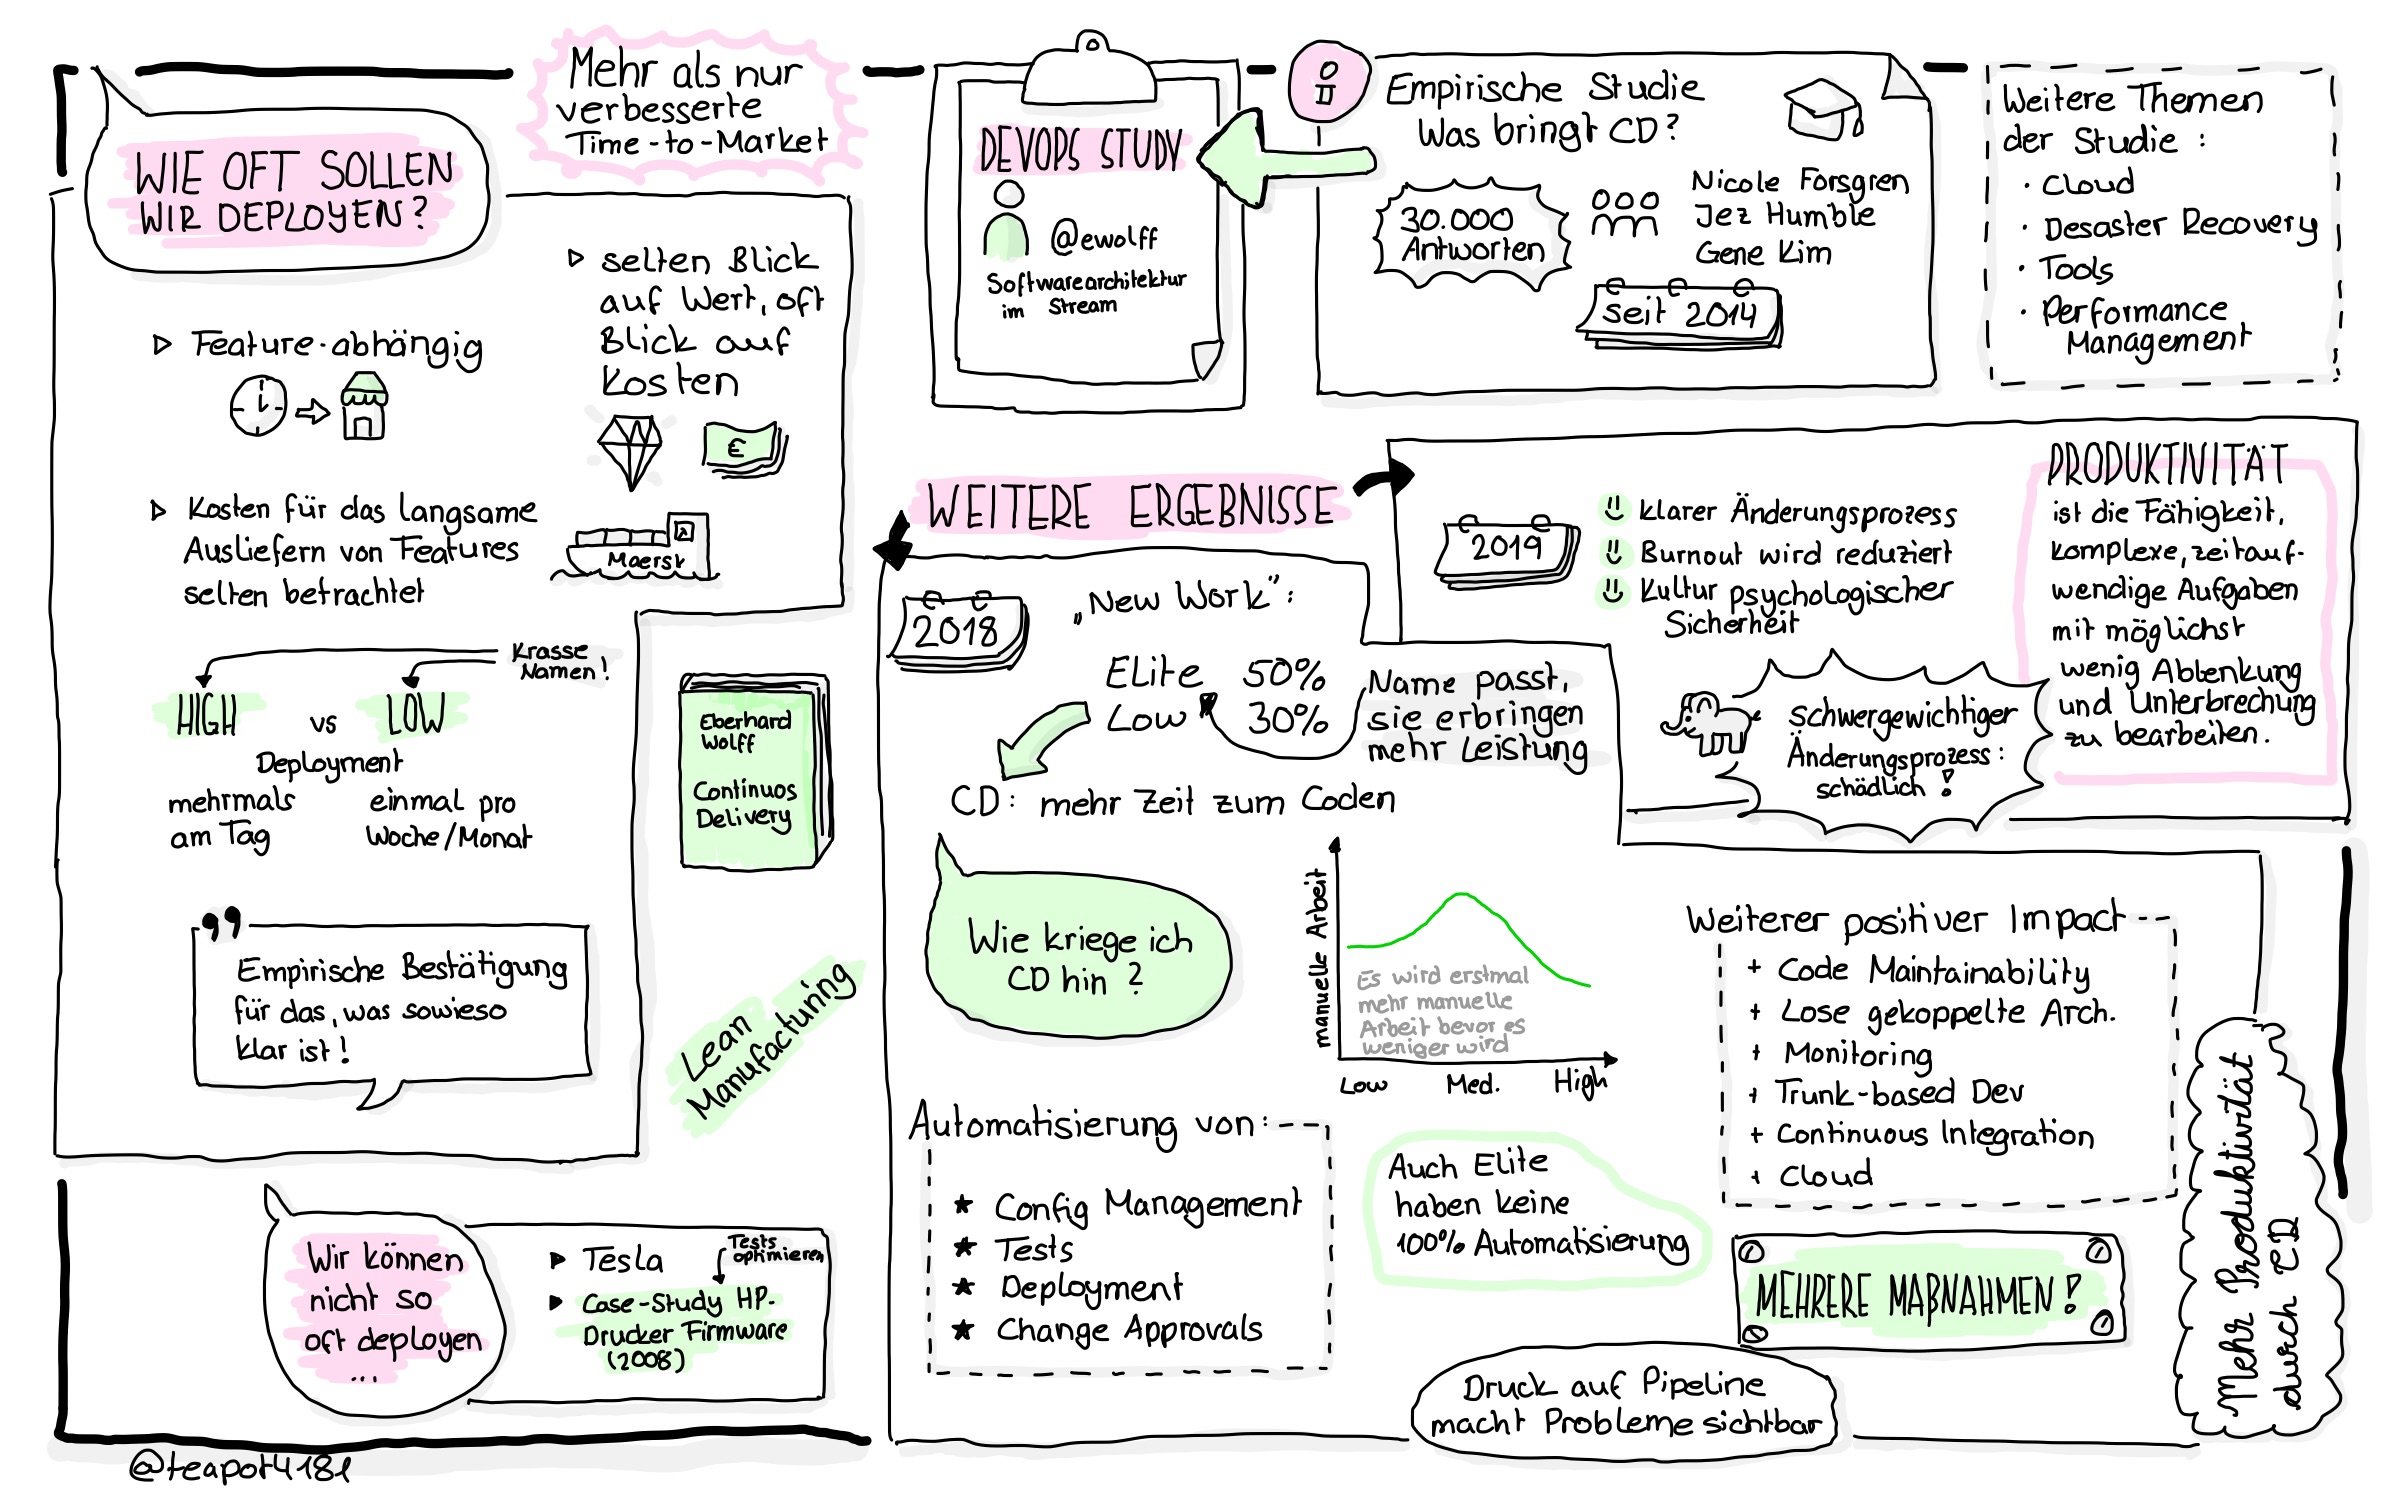 Mehr als nur
verbesserte
Time-to-Market
WIE OFT SOLLEN
WIR DEPLOYEN?
▷ Feature-abhängig
▷ selten Blick
auf Wert, oft
Blick auf
Kosten
€
▷ Kosten für das langsame
Ausliefern von Features
selten betrachtet
Maersk
Krasse
Namen!
HIGH vs LOW
Deployment
mehrmals
am Tag
einmal pro
Woche/Monat
Empirische Bestätigung
für das, was sowieso
klar ist!
Eberhard
Wolff
Continuos
Delivery
Lean
Manufacturing
Wir können
nicht so
oft deployen
...
▷ Tesla
Tests
optimieren
▷ Case-Study HP-
Drucker Firmware
(2008)
@teapot4181
DEVOPS STUDY
@ewolff
Softwarearchitektur
im Stream
Empirische Studie
Was bringt CD?
30.000
Antworten
Nicole Forsgren
Jez Humble
Gene Kim
seit 2014
Weitere Themen
der Studie:
· Cloud
· Desaster Recovery
· Tools
· Performance
Management
WEITERE ERGEBNISSE
2018
„New Work":
Elite 50%
Low 30%
Name passt,
sie erbringen
mehr Leistung
CD: mehr Zeit zum Coden
Wie kriege ich
CD hin?
manuelle Arbeit
Es wird erstmal
mehr manuelle
Arbeit bevor es
weniger wird
Low Med. High
Automatisierung von:
★ Config Management
★ Tests
★ Deployment
★ Change Approvals
Auch Elite
haben keine
100% Automatisierung
2019
klarer Änderungsprozess
Burnout wird reduziert
Kultur psychologischer
Sicherheit
Schwergewichtiger
Änderungsprozess:
schädlich!
PRODUKTIVITÄT
ist die Fähigkeit,
komplexe, zeitauf-
wendige Aufgaben
mit möglichst
wenig Ablenkung
und Unterbrechung
zu bearbeiten.
Weiterer positiver Impact
+ Code Maintainability
+ Lose gekoppelte Arch.
+ Monitoring
+ Trunk-based Dev
+ Continuous Integration
+ Cloud
MEHRERE MAßNAHMEN!
Druck auf Pipeline
macht Probleme sichtbar
Mehr Produktivität
durch CD